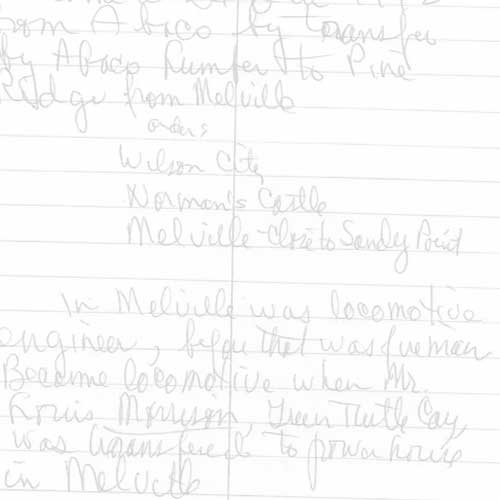 from Abaco by transfer
by Abaco Lumber to Pine
Ridge from Melville
orders
Wilson City
Norman's Castle
Melville - Close to Sandy Point
In Melville was locomotive
engineer, before that was fireman
Became locomotive when Mr.
Louis Morrison, Green Turtle Cay,
was transfered to powerhouse
in Melville